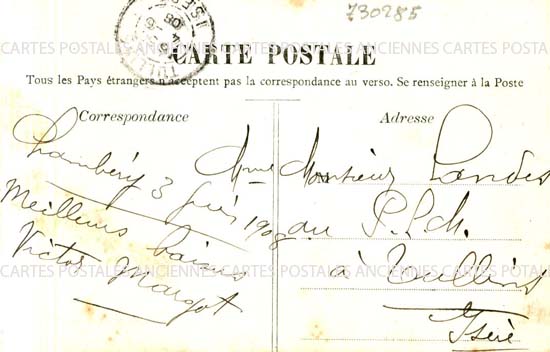 730285
TULLINS
6-4
08
ISERE
CARTE POSTALE
Tous les Pays étrangers n'acceptent pas la correspondance au verso. Se renseigner à la Poste
Correspondance
Chambéry 3 Juin 1908
Meilleurs baisers
Victor Margot
Adresse
Mme Monsieur Landes
au P.L.M.
à Tullins
Isère
CARTES POSTALES ANCIENNES CARTES POSTALES ANCIENNES CARTES
CARTES POSTALES ANCIENNES CARTES POSTALES ANCIENNES CARTES